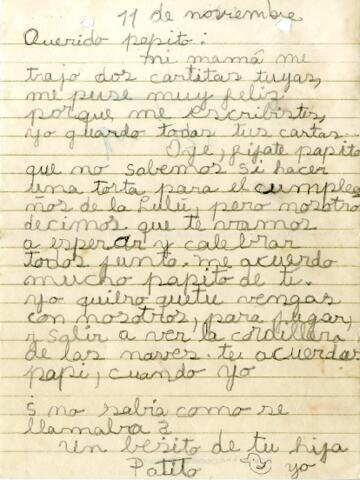 11 de noviembre
Querido papito:
mi mamá me
trajo dos cartitas tuyas,
me puse muy feliz
porque me escribistes,
yo guardo todas tus cartas.
Oye, fijate papito
que no sabemos si hacer
una torta para el cumplea
ños de la Lulú, pero nosotro
decimos que te vamos
a esperar y calebrar
todos junto. me acuerdo
mucho papito de ti.
yo quiero quetu vengas
con nosotros, para jugar,
y salir a ver la cordillera
de las naves. te acuerdas
papi, cuando yo
¿ no sabía como se
llamabra ?
Un besito de tu hija
Patito yo